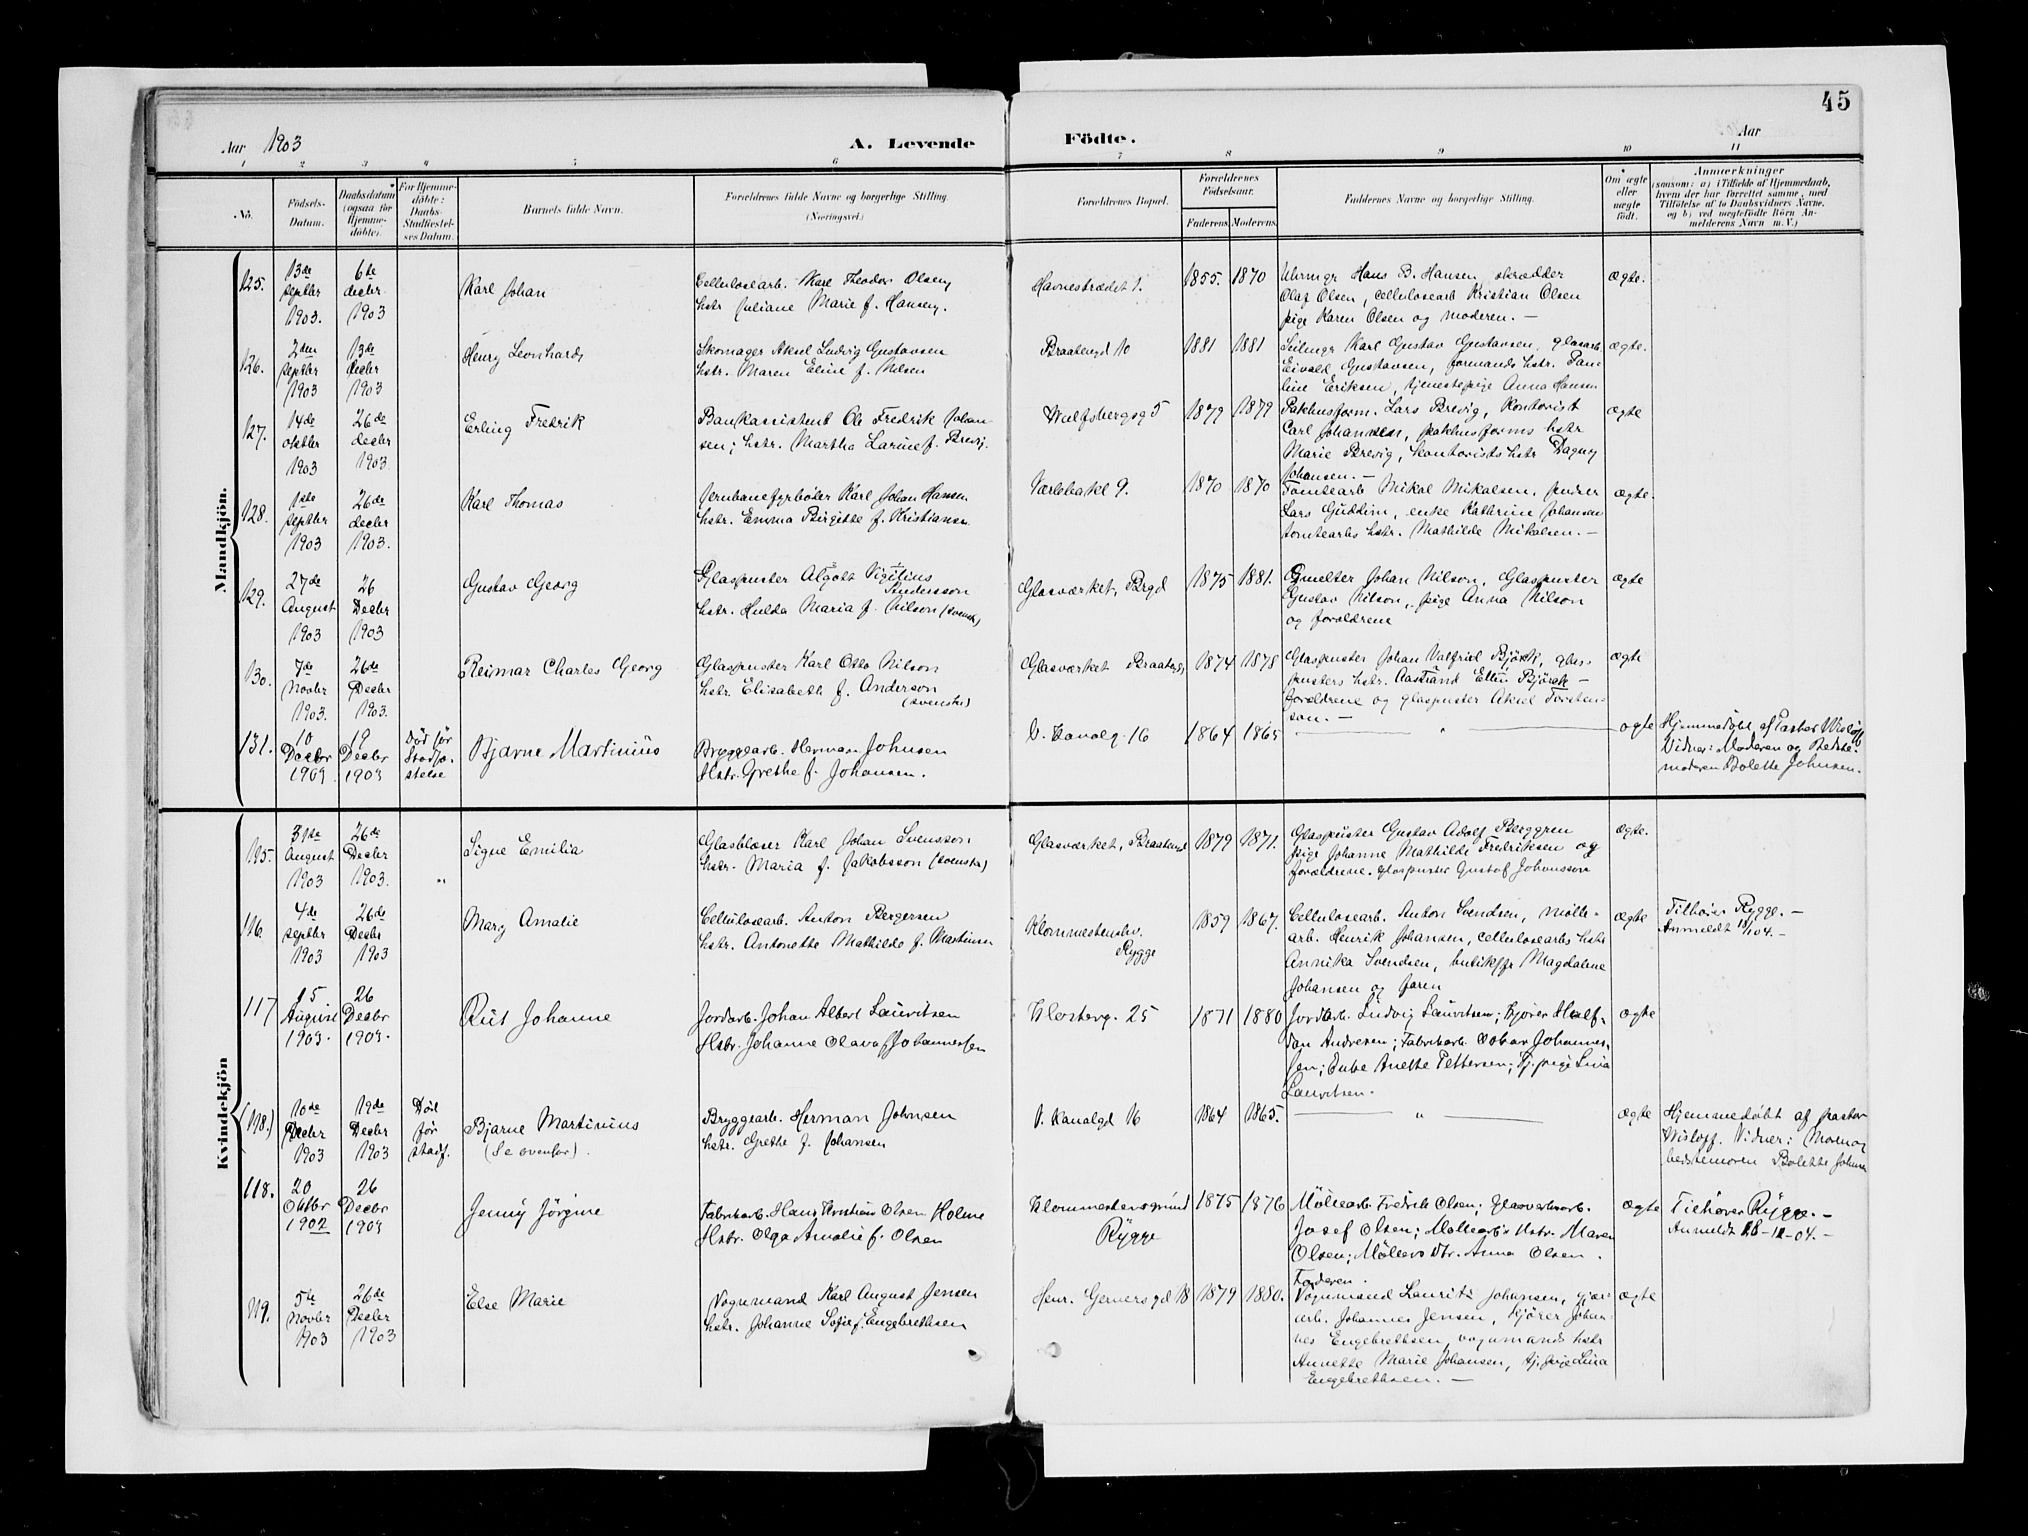 45
Aar 1903
A. Levende
Födte.
Aar
1 2 3 4 5 6 7 8 9 10 11
No.
Födsels-
Datum.
Daabsdatum
(ogsaa for
Hjemme-
döbte).
For Hjemme-
döbte:
Daabs-
Stadfæstel-
ses Datum.
Barnets fulde Navn.
Forældrenes fulde Navne og borgerlige Stilling.
(Næringsvei.)
Forældrenes Bopæl.
Forældrenes
Födselsaar.
Faderens. Moderens.
Faddernes Navne og borgerlige Stilling.
Om ægte
eller
uægte
födt.
Anmærkninger
(saasom: a) i Tilfælde af Hjemmedaab,
hvem der har forrettet samme, med
Tilföielse af to Daabsvidners Navne,
og b) ved uægtefödte Börn An-
melderens Navn m. V.)
Mandkjön.
125.
13de
septbr
1903.
6te
decbr
1903
Karl Johan
Cellulosearb. Karl Theodor Olsen,
hstr Juliane Marie f. Hansen.
Havnestrædet 1.
1855. 1870
Uhrmgr Hans B. Hansen, skrædder
Olaf Olsen, cellulosearb Kristian Olsen
pige Karen Olsen og moderen. —
ægte.
126.
2den
septbr
1903
13de
decbr
1903
Henry Leonhard
Skomager Aksel Ludvig Gustavsen
hstr. Maren Eline f. Nilsen
Braatengd 10
1881 1881
Seilmgr Karl Gustav Gustavsen, glasarb.
Eivald Gustavsen, formands hstr. Pau-
line Eriksen, tjenestepige Anna Hansen
ægte.
127.
14de
oktbr
1903
26de
decbr
1903.
Erling Fredrik
Bankassistent Ole Fredrik Johan-
sen; hstr. Martha Larine f. Brevig.
Wulfsbergsg 5
1879 1879
Pakhusform. Lars Brevig, Kontorist
Carl Johansen, pakhusforms hstr
Marie Brevig, kontorists hstr Dagny
Johansen. —
ægte
128.
1ste
septbr
1903
26de
decbr
1903.
Karl Thomas
Jernbanefyrböter Karl Johan Hansen
hstr. Emma Birgitte f. Kristiansen
Værlebakl 9.
1870 1870
Tomtearb Mikal Mikalsen, pudser
Lars Guddim, enke Kathrine Johansen
tomtearbs hstr. Mathilde Mikalsen. —
ægte.
129.
27de
August
1903
26
Decbr
1903
Gustav Georg
Glaspuster Algott Vigilius
Andersson
hstr. Hulda Maria f. Nilson (svensk)
Glasværket, Brgd
1875 1881.
Smelter Johan Nilson, Glaspuster
Gustav Nilson, pige Anna Nilson
og forældrene
ægte
130.
7de
Novbr
1903.
26de
Decbr
1903.
Reimar Charles Georg
Glaspuster Karl Otto Nilson
hstr. Elisabeth f. Anderson
(svenske)
Glasværket Braateng.
1874 1878
Glaspuster Johan Valfrid Björk, glas-
pusters hstr. Aastrand Ellen Björck —
forældrene og glaspuster Aksel Torsten-
son. —
ægte
131.
10
Decbr
1903.
19
Decbr
1903
Död för
Stadfæ-
stelse
Bjarne Martinius
Bryggearb. Herman Johnsen
Hstr. Grethe f. Johansen.
V. Kanalg. 16
1864 1865
— „ —
ægte
Hjemmedöbt af Pastor Wislöff
Vidner: Moderen og Bedste-
moderen Bolette Johnsen.
Kvindekjön
115.
31te
August
1903
26de
Decbr
1903.
„
Signe Emilia
Glasblæser Karl Johan Svensson
hstr. Maria f. Jakobsson (svenske)
Glasværket, Braatengd
1879 1871.
Glaspuster Gustav Adolf Berggren
pige Johanne Mathilde Fredriksen og
forældrene. Glaspuster Gustof Johansson
ægte.
116.
4de
septbr
1903
26de
Decbr
1903
Mary Amalie
Cellulosearb. Anton Bergersen
hstr. Antonette Mathilde f. Martinsen
Klommestenshv.
Rygge
1859 1867.
Cellulosearb. Anton Svendsen, mölle-
arb. Henrik Johansen, cellulosearbs hstr
Annika Svendsen, butikfr Magdalene
Johansen og faren
ægte
Tilhörer Rygge. —
Anmeldt 18/1 04. —
117
15
August
1903.
26
Decbr
1903.
Rut Johanne
Jordarb. Johan Albert Lauritsen
Hstr. Johanne Olava f. Johannessen
Klosterg. 25
1871 1880
Jordarb. Ludvig Lauritsen; Kjörer Half-
dan Andresen; Fabrikarb. Oskar Johannes-
sen; Enke Anette Pettersen; Tj. pige Lina
Lauritsen.
ægte
(118.)
10de
Decbr
1903
19de
Decbr
1903
Död
för
stadf.
Bjarne Martinius
(Se ovenfor).
Bryggearb. Herman Johnsen
hstr. Grethe f. Johansen
V. Kanalgd 16
1864 1865.
— „ —
ægte
Hjemmedöbt af pastor
Wislöff. Vidner: Mor og
bedstemoren Bolette Johnsen
118.
20
Oktbr
1902
26
Decbr
1903
Jenny Jörgine
Fabrikarb. Hans Kristian Olsen Holme
Hstr. Olga Amalie f. Olsen
Klommestensgrund
Rygge
1875 1876
Möllearb. Fredrik Olsen; Glasverksarb.
Josef Olsen; Möllearb's Hstr. Maren
Olsen; Möllers Dtr. Anna Olsen.
Faderen.
ægte
Tilhörer Rygge. —
Anmeldt 18-11-04. —
119.
5te
Novbr
1903
26de
Decbr
1903
Else Marie
Vognmand Karl August Jensen
hstr. Johanne Sofie f. Engebrethsen
Henr. Gernersgd 18
1879 1880.
Vognmand Lauritz Johansen,
arb. Johannes Jensen, Kjörer Johan-
nes Engebrethsen, vognmands hstr
Annette Marie Johansen, tj. pige Lina
Engebrethsen. —
ægte